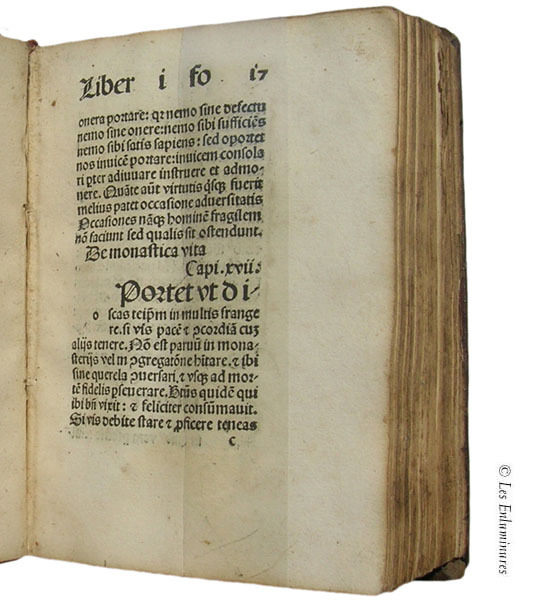 Liber i fo 17
onera portare: qr nemo sine defectu
nemo sine onere: nemo sibi sufficiēs
nemo sibi satis sapiens: sed oportet
nos invicē portare: invicem consola
ri pter adiuuare instruere et admo-
nere. Quāte aūt virtutis qsqȝ fuerit
melius patet occasione adversitatis
Occasiones nāqȝ hominē fragilem
nō faciunt sed qualis sit ostendunt.
De monastica vita
Capi. xvii:
Portet vt di-
o scas teipm in multis frange
re. si vis pacē ⁊ ꝯcordiā cuȝ
alijs tenere. Nō est paruū in mona-
sterijs vel in ꝯgregatōne hītare. ⁊ ibi
sine querela ꝯuersari. ⁊ vsqȝ ad mor-
tē fidelis pseuerare. Btūs quidē qui
ibi bn̄ vixit: ⁊ feliciter consūmauit.
Si vis debite stare ⁊ ꝓficere teneas
c
© Les Enluminures